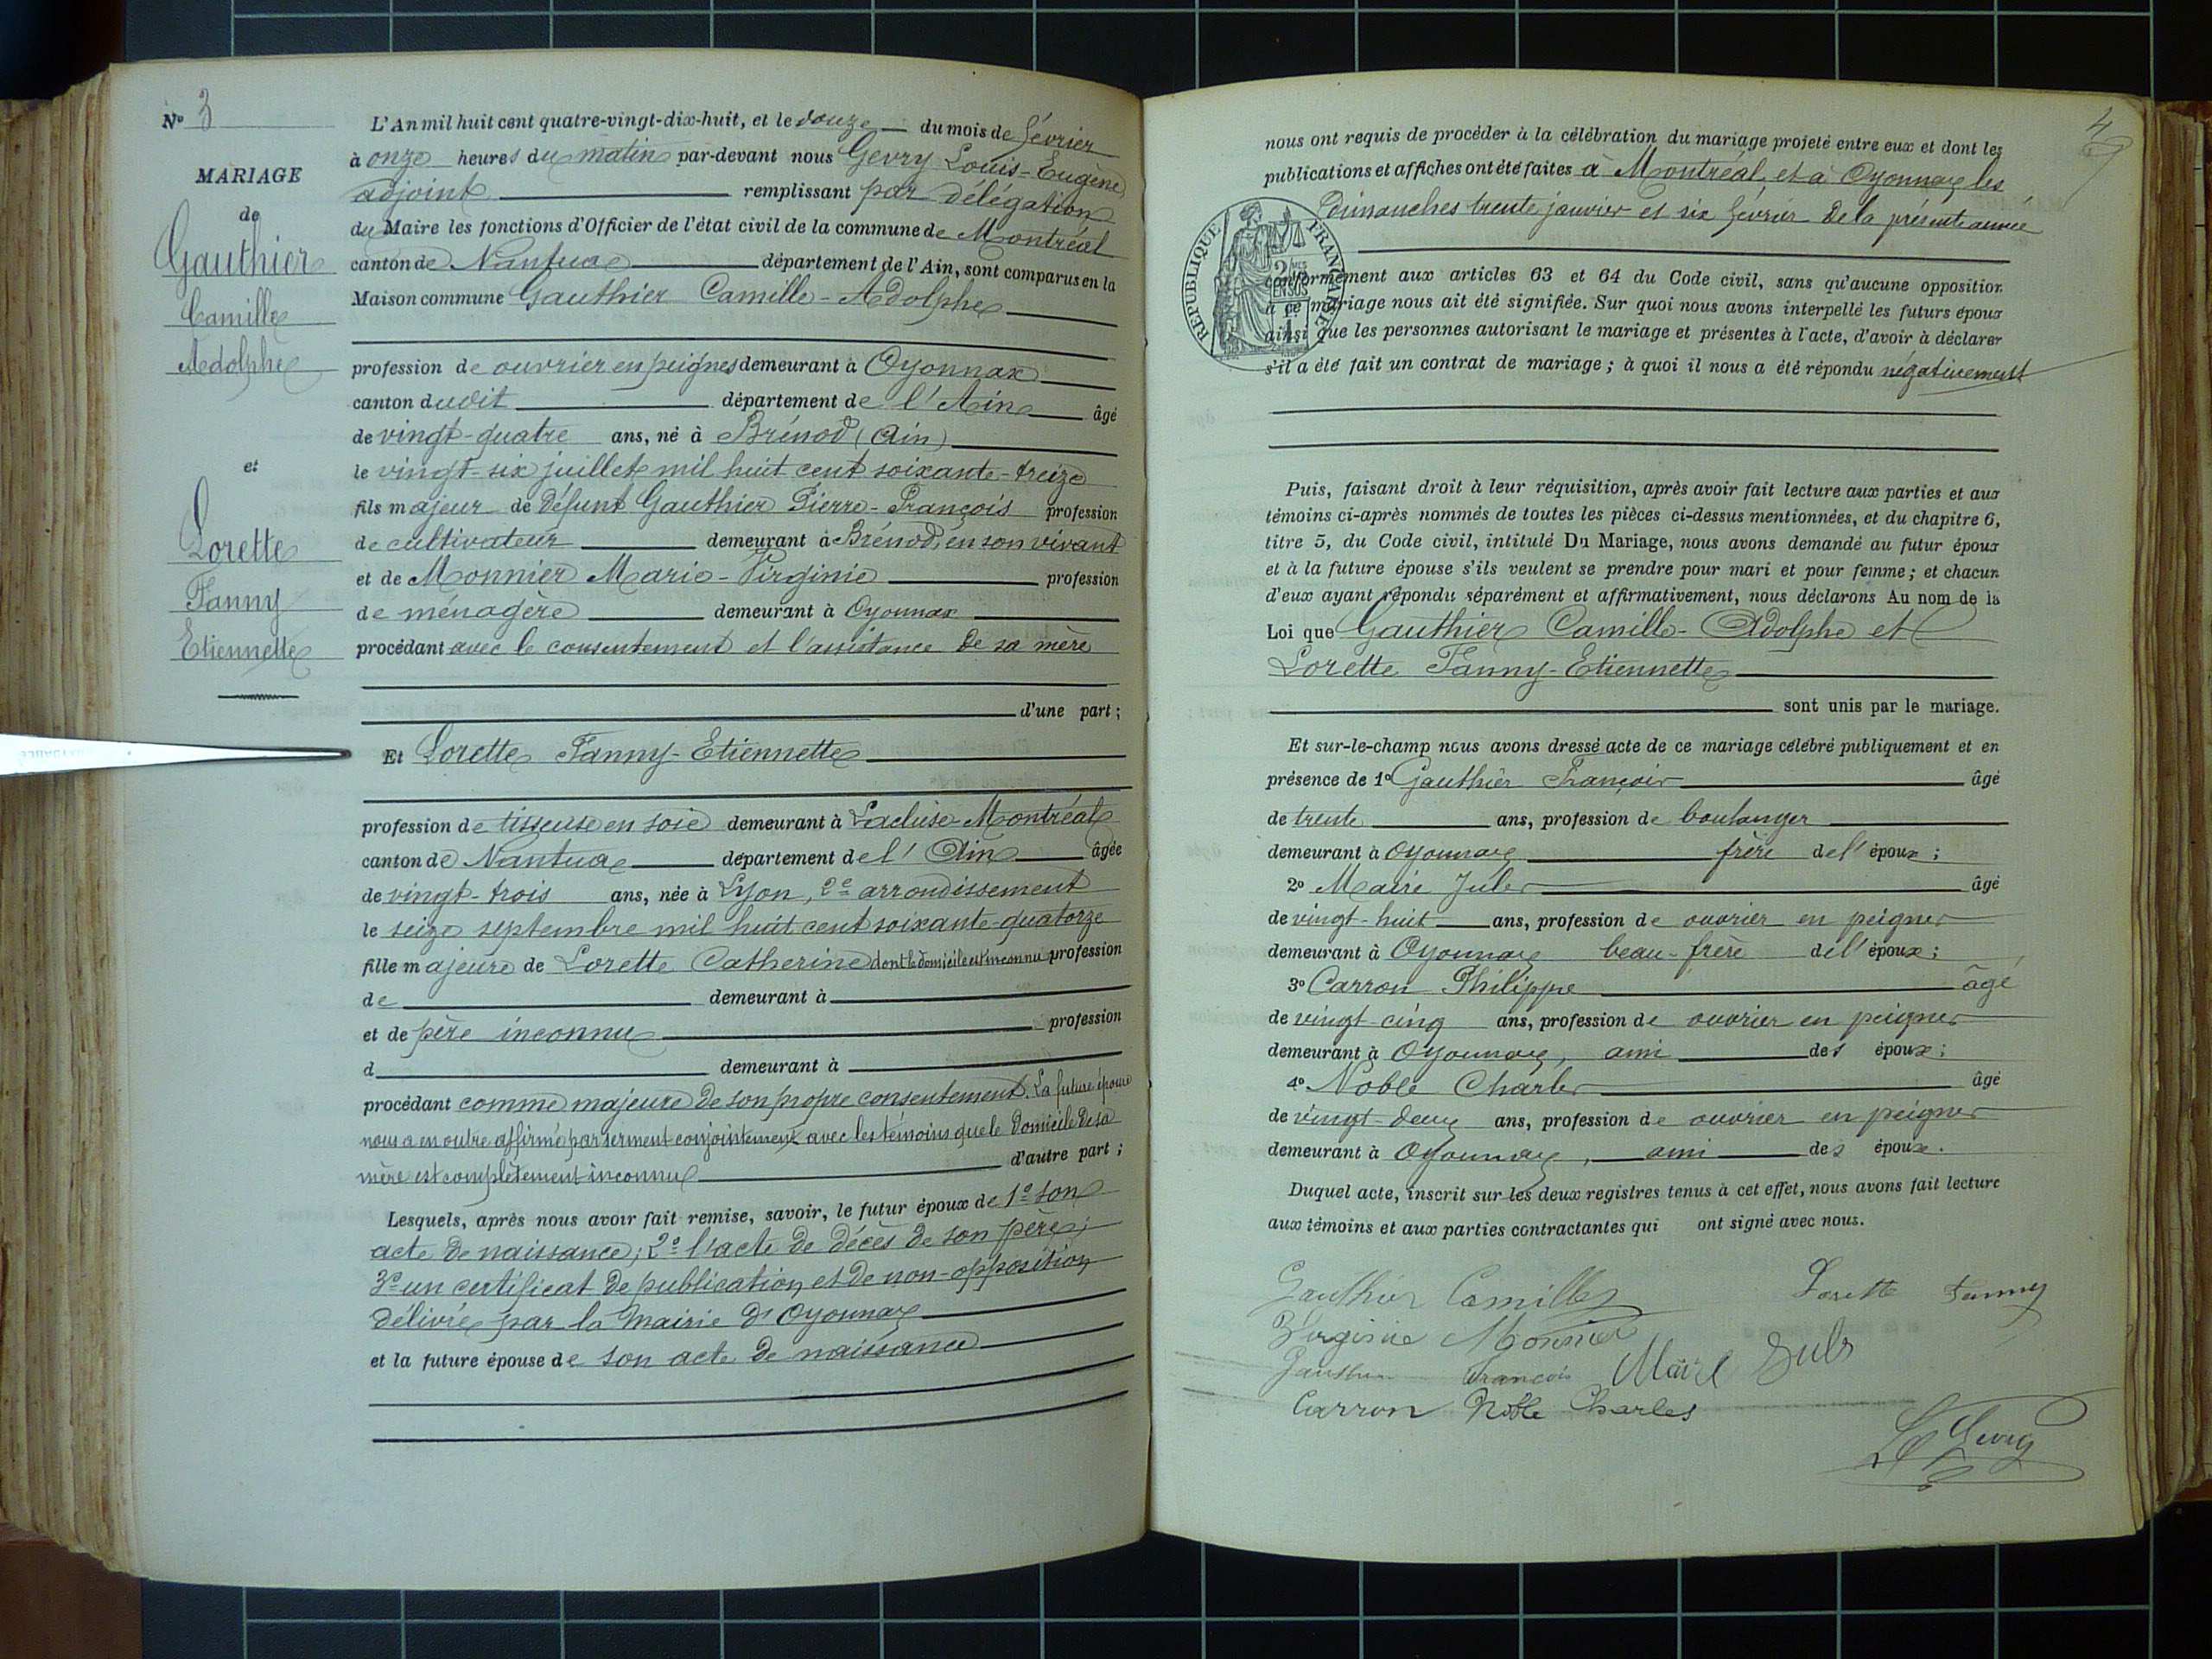 N° 3
MARIAGE
de
Gauthier
Camille
Adolphe
et
Lorette
Fanny
Etiennette
L'An mil huit cent quatre-vingt-dix-huit, et le douze du mois de février
à onze heures du matin par-devant nous Gevry Louis-Eugène
adjoint remplissant par délégation
du Maire les fonctions d'Officier de l'état civil de la commune de Montréal
canton de Nantua département de l'Ain, sont comparus en la
Maison commune Gauthier Camille-Adolphe
profession de ouvrier en peignes demeurant à Oyonnax
canton dudit département de l'Ain âgé
de vingt-quatre ans, né à Brénod (Ain)
le vingt-six juillet mil huit cent soixante-treize
fils majeur de défunt Gauthier Pierre-François profession
de cultivateur demeurant à Brénod, en son vivant
et de Monnier Marie-Virginie profession
de ménagère demeurant à Oyonnax
procédant avec le consentement et l'assistance de sa mère
d'une part;
Et Lorette Fanny-Etiennette
profession de tisseuse en soie demeurant à Lacluse-Montréal
canton de Nantua département de l'Ain âgée
de vingt-trois ans, née à Lyon, 2e arrondissement
le seize septembre mil huit cent soixante-quatorze
fille majeure de Lorette Catherine dont le domicile est inconnu profession
de demeurant à
et de père inconnu profession
d demeurant à
procédant comme majeure de son propre consentement. La future épouse
nous a en outre affirmé par serment conjointement avec les témoins que le domicile de sa
mère est complètement inconnu d'autre part;
Lesquels, après nous avoir fait remise, savoir, le futur époux de 1° son
acte de naissance; 2° l'acte de décès de son père;
3° un certificat de publication et de non-opposition
délivré par la Mairie d'Oyonnax
et la future épouse de son acte de naissance
4
nous ont requis de procéder à la célébration du mariage projeté entre eux et dont les
publications et affiches ont été faites à Montréal, et à Oyonnax les
Dimanches trente janvier et six février de la présente année
RÉPUBLIQUE FRANÇAISE
conformément aux articles 63 et 64 du Code civil, sans qu'aucune opposition
à ce mariage nous ait été signifiée. Sur quoi nous avons interpellé les futurs époux
ainsi que les personnes autorisant le mariage et présentes à l'acte, d'avoir à déclarer
s'il a été fait un contrat de mariage; à quoi il nous a été répondu négativement
Puis, faisant droit à leur réquisition, après avoir fait lecture aux parties et aux
témoins ci-après nommés de toutes les pièces ci-dessus mentionnées, et du chapitre 6,
titre 5, du Code civil, intitulé Du Mariage, nous avons demandé au futur époux
et à la future épouse s'ils veulent se prendre pour mari et pour femme; et chacun
d'eux ayant répondu séparément et affirmativement, nous déclarons Au nom de la
Loi que Gauthier Camille-Adolphe et
Lorette Fanny-Etiennette
sont unis par le mariage.
Et sur-le-champ nous avons dressé acte de ce mariage célébré publiquement et en
présence de 1° Gauthier François âgé
de trente ans, profession de boulanger
demeurant à Oyonnax frère de l'époux;
2° Maire Jules âgé
de vingt-huit ans, profession de ouvrier en peignes
demeurant à Oyonnax beau-frère de l'époux;
3° Carron Philippe âgé
de vingt-cinq ans, profession de ouvrier en peignes
demeurant à Oyonnax, ami des époux;
4° Noble Charles âgé
de vingt-deux ans, profession de ouvrier en peignes
demeurant à Oyonnax, ami des époux.
Duquel acte, inscrit sur les deux registres tenus à cet effet, nous avons fait lecture
aux témoins et aux parties contractantes qui ont signé avec nous.
Gauthier Camille Lorette Fanny
Virginie Monnier
Gauthier François Maire Jules
Carron Noble Charles
L Gevry